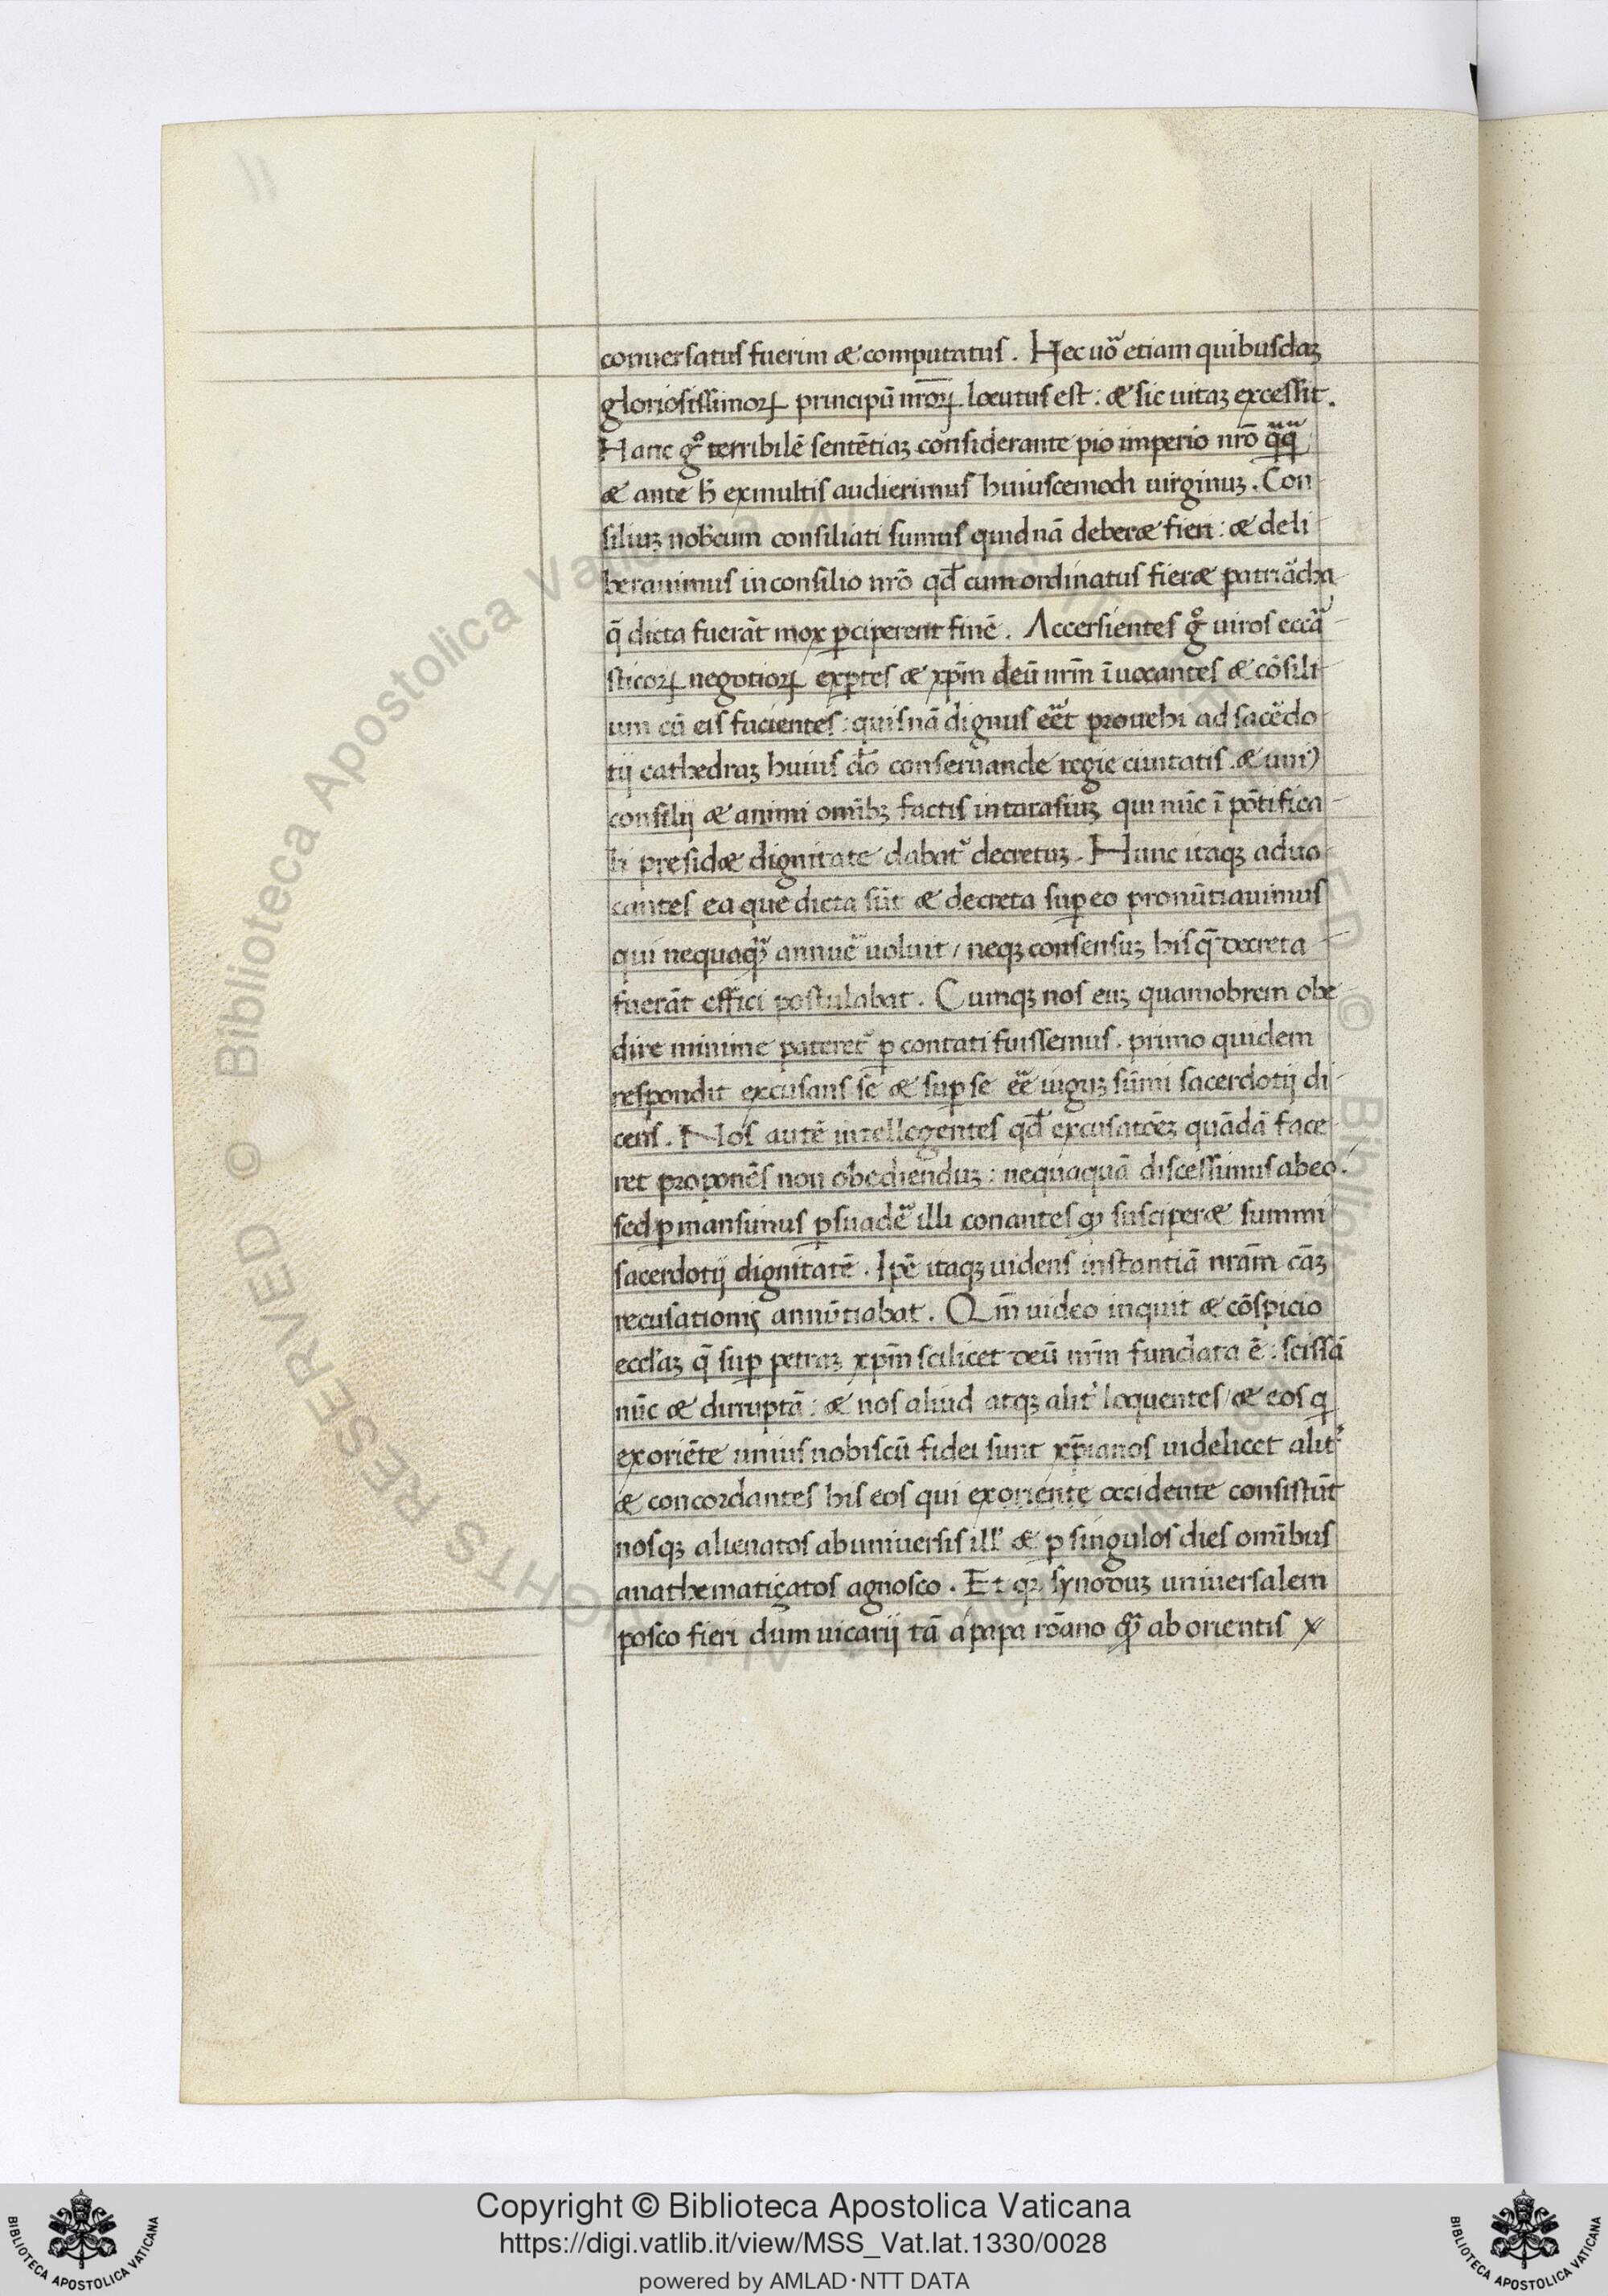 conuersatus fuerim & computatus. Hec uo᷒ etiam quibusdaꝫ
gloriosissimoꝝ principū nr̄oꝝ locutus est: & sic uitaꝫ excessit.
Hanc gͦ terribilē sentētiaꝫ considerante pio imperio nrō
& ante h̄ exmultis audierimus huiuscemodi uirginuꝫ. Con
siliuꝫ nobcum consiliati sumus quidnā deber& fieri: & deli
berauimus inconsilio nrō qd̄ cum ordinatus fier& patriācha
q̄ dicta fuerāt mox ꝑciperent finē. Accersientes gͦ uiros eccā
sticoꝝ negotioꝝ exꝑtes & xp̄m deū nrm̄ īuocantes & cōsili
um cū eis facientes: quisnā dignus eēt prouehi ad sacēdo
tij cathedraꝫ huius dō conseruande regie ciuitatis. & uniꝰ
consilij & animi omībꝫ factis intarasiuꝫ qui nūc ī pōtifica
li presid& dignitate dabat᷒ decretuꝫ. Hunc itaqꝫ aduo
cantes ea que dicta sūt & decreta suꝑeo pronūtiauimus
qui nequaqᷓꝫ annuē uoluit / neqꝫ consensuꝫ his q̄ decreta
fuerāt effici postulabat. Cumqꝫ nos euꝫ quamobrem obe
dire minime pateret᷒ ꝑ contati fuissemus. primo quidem
respondit excusans se & suꝑse eē iuguꝫ sūmi sacerdotij di
cens. Nos autē intellegentes qd̄ excusatōeꝫ quādā face
ret proponēs non obedienduꝫ: nequaquā discessimus abeo.
sed ꝑmansimus ꝑsuadē illi conantes ꝙ susciper& summi
sacerdotij dignitatē. Ipē itaqꝫ uidens instantiā nrām cāꝫ
recusationis annūtiabat. Qm̄ uideo inquit & cōspicio
eccl'aꝫ q̄ suꝑ petraꝫ xp̄m scilicet deū nrm̄ fundata ē: scissā
nūc & dirruptā: & nos aliud atqꝫ alit᷒ loquentes / & eos q
exoriēte unius nobiscū fidei sunt xp̄ianos uidelicet alit᷒
& concordantes his eos qui exoriente occidente consistūt
nosqꝫ alienatos abuniuersis ill' & ꝑ singulos dies omībus
anathematiçatos agnosco. Et qꝫ synoduꝫ uniuersalem
posco fieri dum uicarij tā a papa rōano qᷓꝫ ab orientis
Copyright © Biblioteca Apostolica Vaticana
https://digi.vatlib.it/view/MSS_Vat.lat.1330/0028
powered by AMLAD·NTT DATA